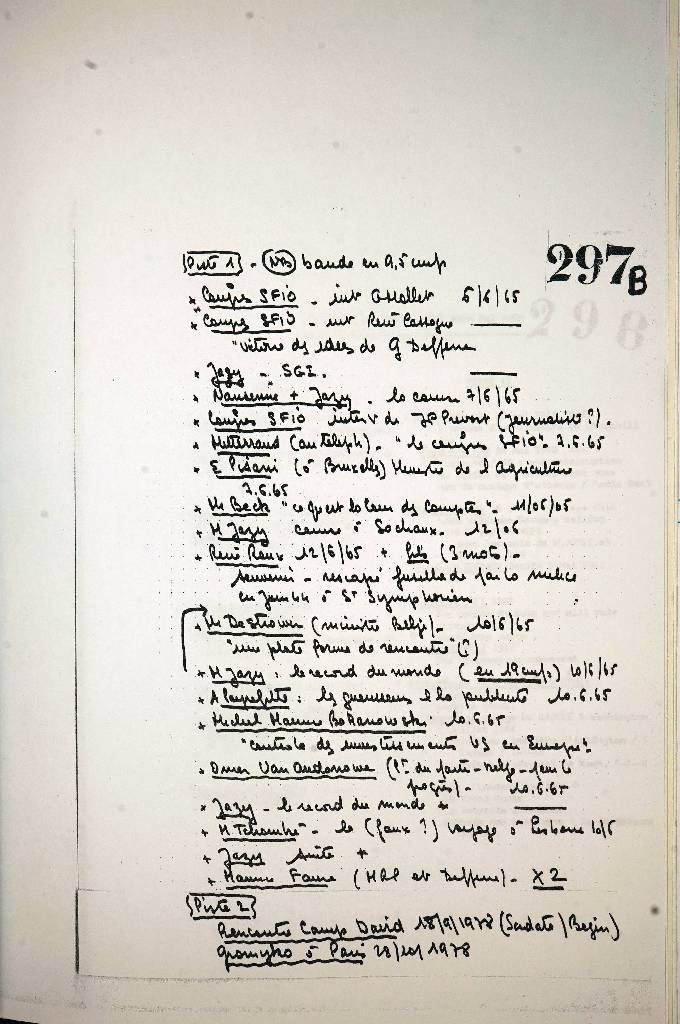 297B
Piste 1 - NB bande en 9,5 cm/s
* Congrès SFIO - int G Mollet 5/6/65
* Congrès SFIO - int René Cassagne ———
"victoire des idées de G Defferre
* Jazy - SGE. ———
* Nausenne + Jazy - la course 7/6/65
* Congrès SFIO interv de JP Prevost (journaliste ?).
* Mitterrand (au téléph) - "le congrès SFIO" 7.6.65
* E Pisani (à Bruxelles) Ministre de l Agriculture
7.6.65
* Mr Beck "ce qu'est la Cour des Comptes" - 11/06/65
* M Jazy course à Sochaux - 12/06
* René Roux 12/6/65 + (3 mots) -
souvenir - rescapé fusillade par la milice
en Juin 44 à St Symphorien
* Mr (ministre Belge) - 10/6/65
"une plate forme de rencontre" (?)
* M Jazy : le record du monde (en 19 cm/s) 10/6/65
* A Peyrefitte : les & la publicité 10.6.65
* Michel Maurice Bokanowski 10.6.65
"contrôle des investissements US en Europe"
* Omer Vanaudenhove (Pt du parti - belge - pour le
progrès) - 10.6.65
* Jazy - le record du monde * ———
* M Tchombé - le (faux ?) voyage à Lisbonne 10/6
* Jazy suite *
* Maurice Faure (MRP et Defferre) - X2
Piste 2
Rencontre Camp David 18/9/1978 (Sadate / Begin)
Gromyko à Paris 28/10/1978